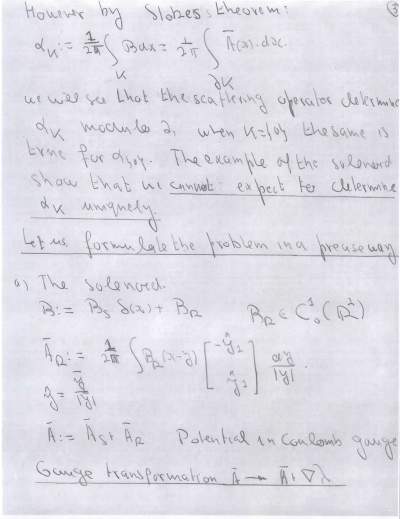 ③
However by Stokes' theorem:
α_K := 1/2π ∫_K B dx = 1/2π ∫_∂K Ā(x)·dx.
we will see that the scattering operator determine
α_K modulo 2, when K={0} the same is
true for α{0}. The example of the solenoid
show that we cannot expect to determine
α_K uniquely.
Let us formulate the problem in a precise way
a) The solenoid.
B := B_S δ(x) + B_R    B_R ∈ C¹₀(ℝ²)
Ā_R := 1/2π ∫ B_R(x-y) [-ŷ₂ ŷ₂] dy/|y|.
ŷ = y/|y|
Ā := Ā_S + Ā_R   Potential in Coulomb gauge
Gauge transformation Ā → Ā + ∇λ